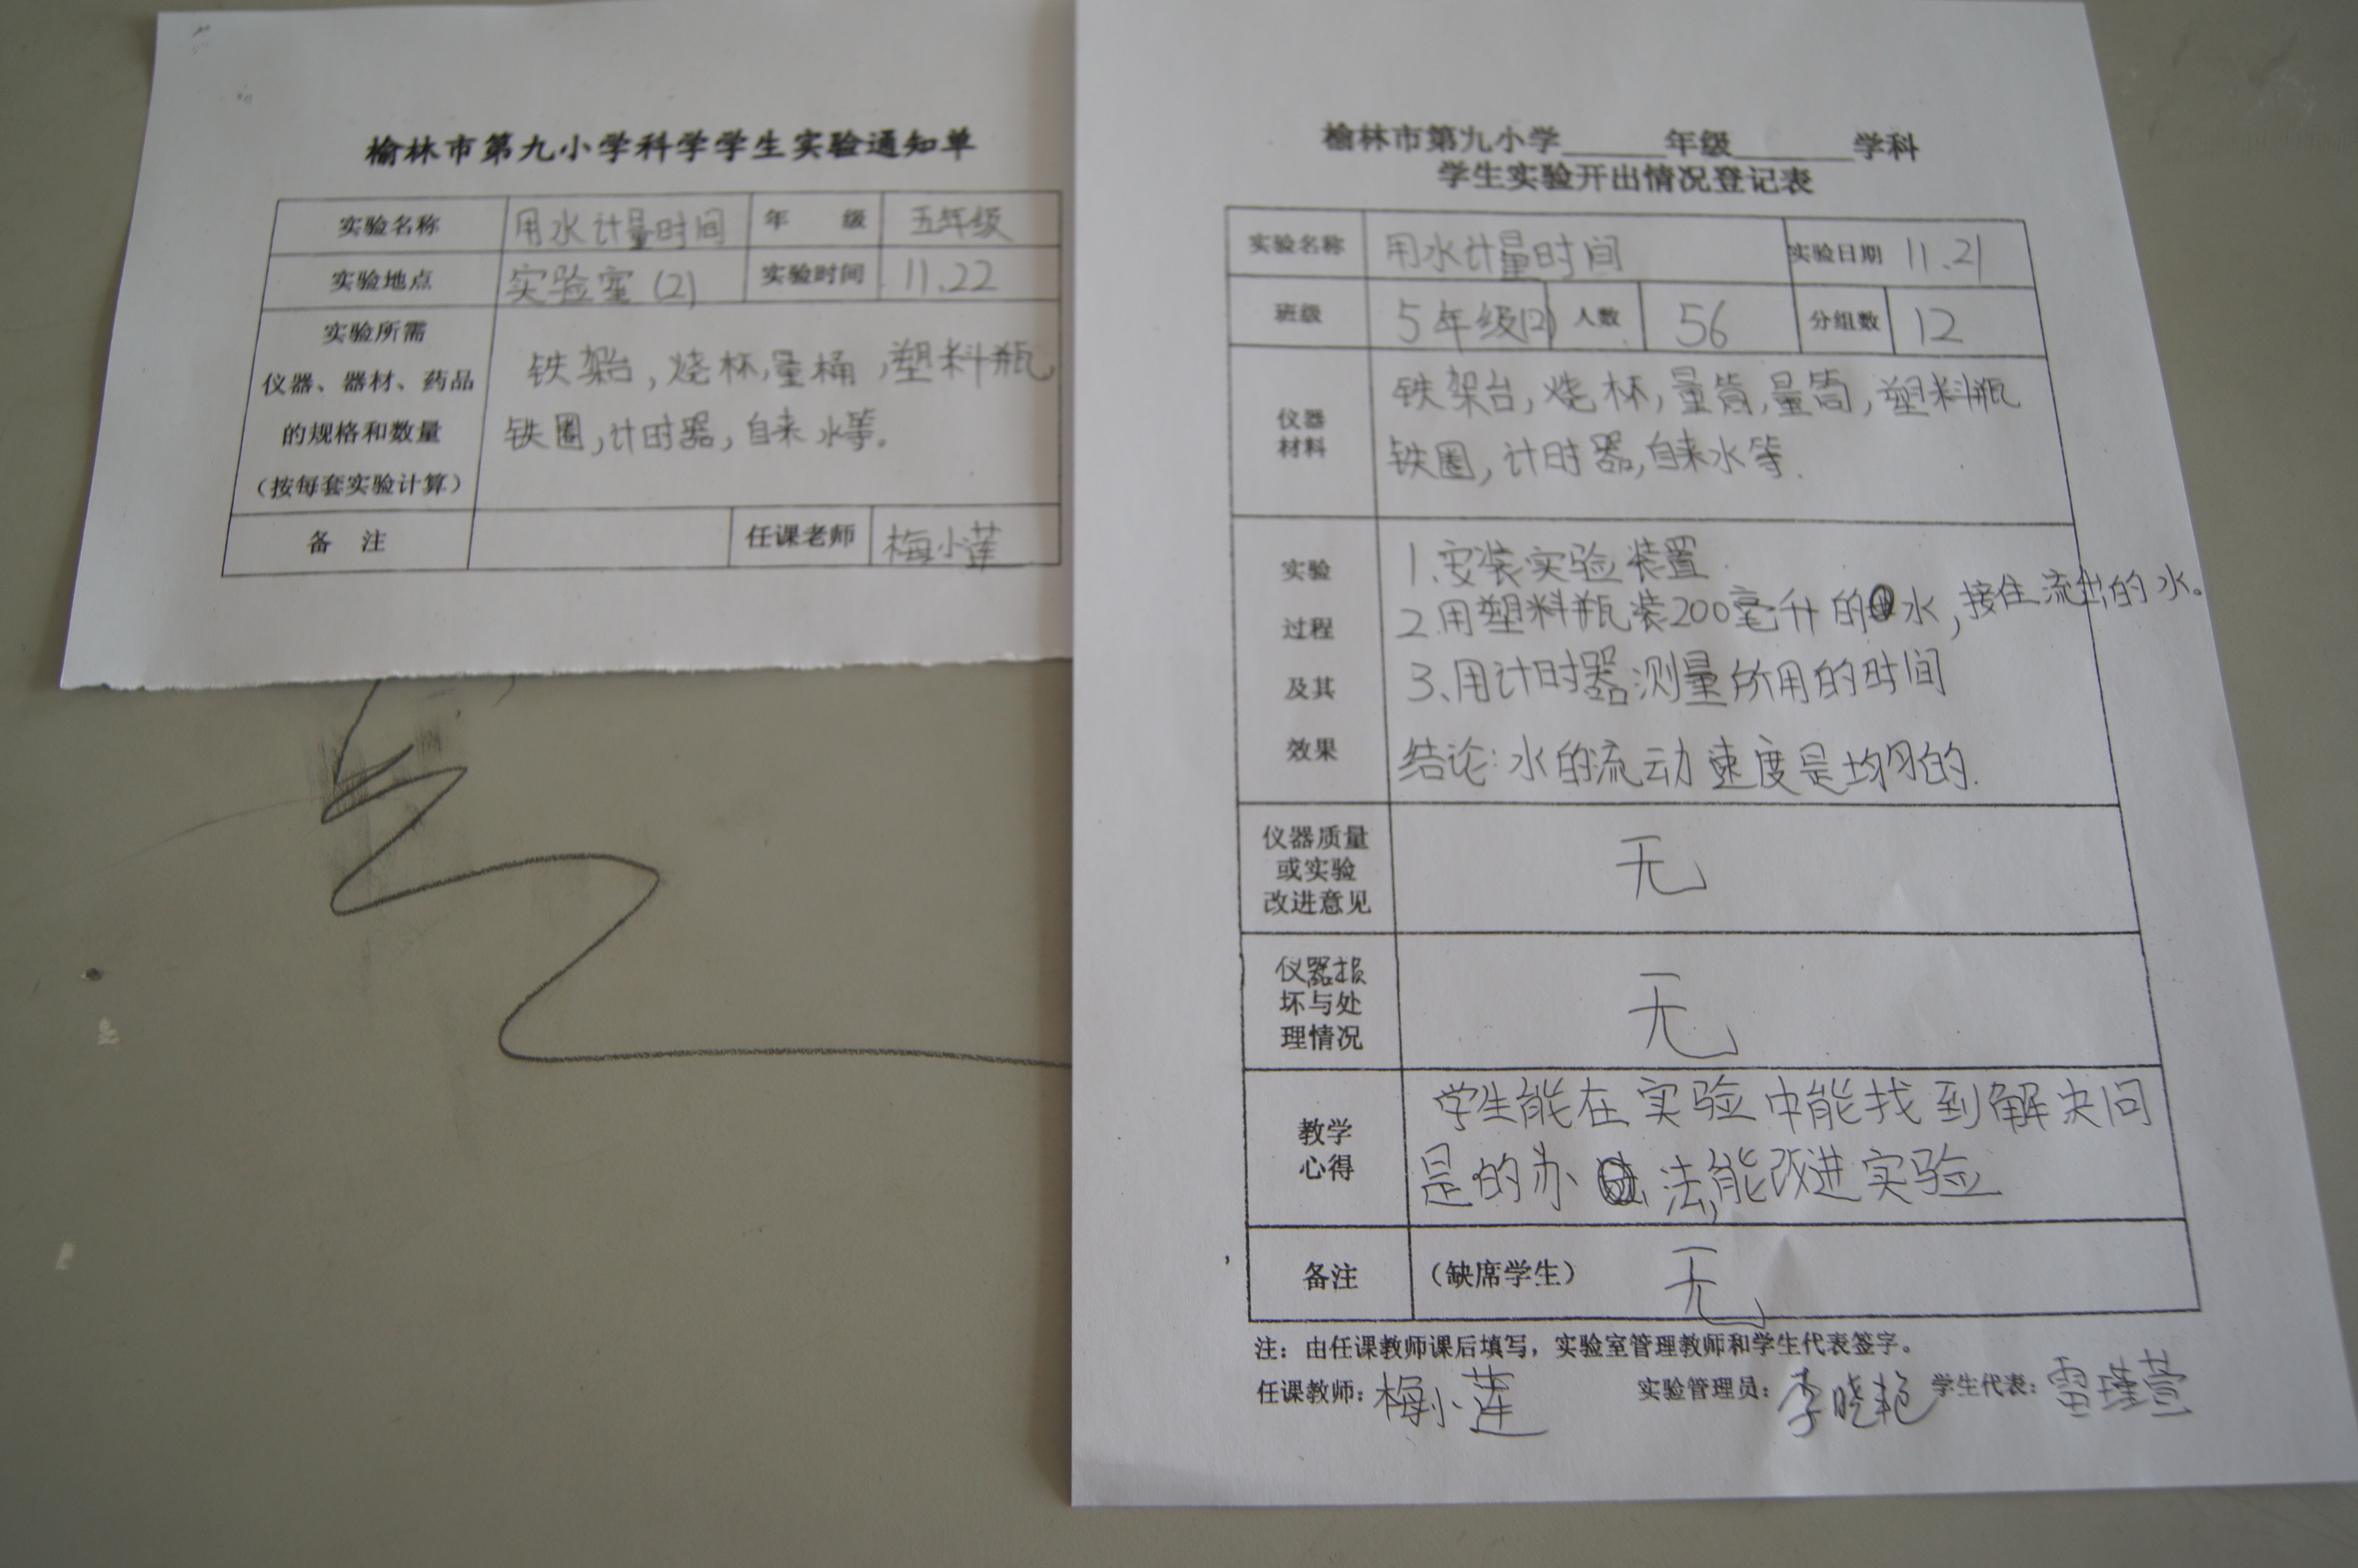 榆林市第九小学科学学生实验通知单
实验名称 用水计量时间 年 级 五年级
实验地点 实验室(2) 实验时间 11.22
实验所需
仪器、器材、药品
的规格和数量
(按每套实验计算)
铁架台,烧杯,量桶,塑料瓶
铁圈,计时器,自来水等。
备 注 任课老师 梅小莲
榆林市第九小学______年级______学科
学生实验开出情况登记表
实验名称 用水计量时间 实验日期 11.21
班级 5年级(2) 人数 56 分组数 12
仪器
材料
铁架台,烧杯,量筒,量筒,塑料瓶
铁圈,计时器,自来水等.
实验
过程
及其
效果
1、安装实验装置.
2.用塑料瓶装200毫升的水,接住流出的水。
3、用计时器测量所用的时间
结论:水的流动速度是均匀的.
仪器质量
或实验
改进意见
无
仪器损
坏与处
理情况
无
教学
心得
学生能在实验中能找到解决问
是的办法,能改进实验
备注 (缺席学生) 无
注:由任课教师课后填写,实验室管理教师和学生代表签字。
任课教师:梅小莲 实验管理员:李晓艳 学生代表:雷瑾萱